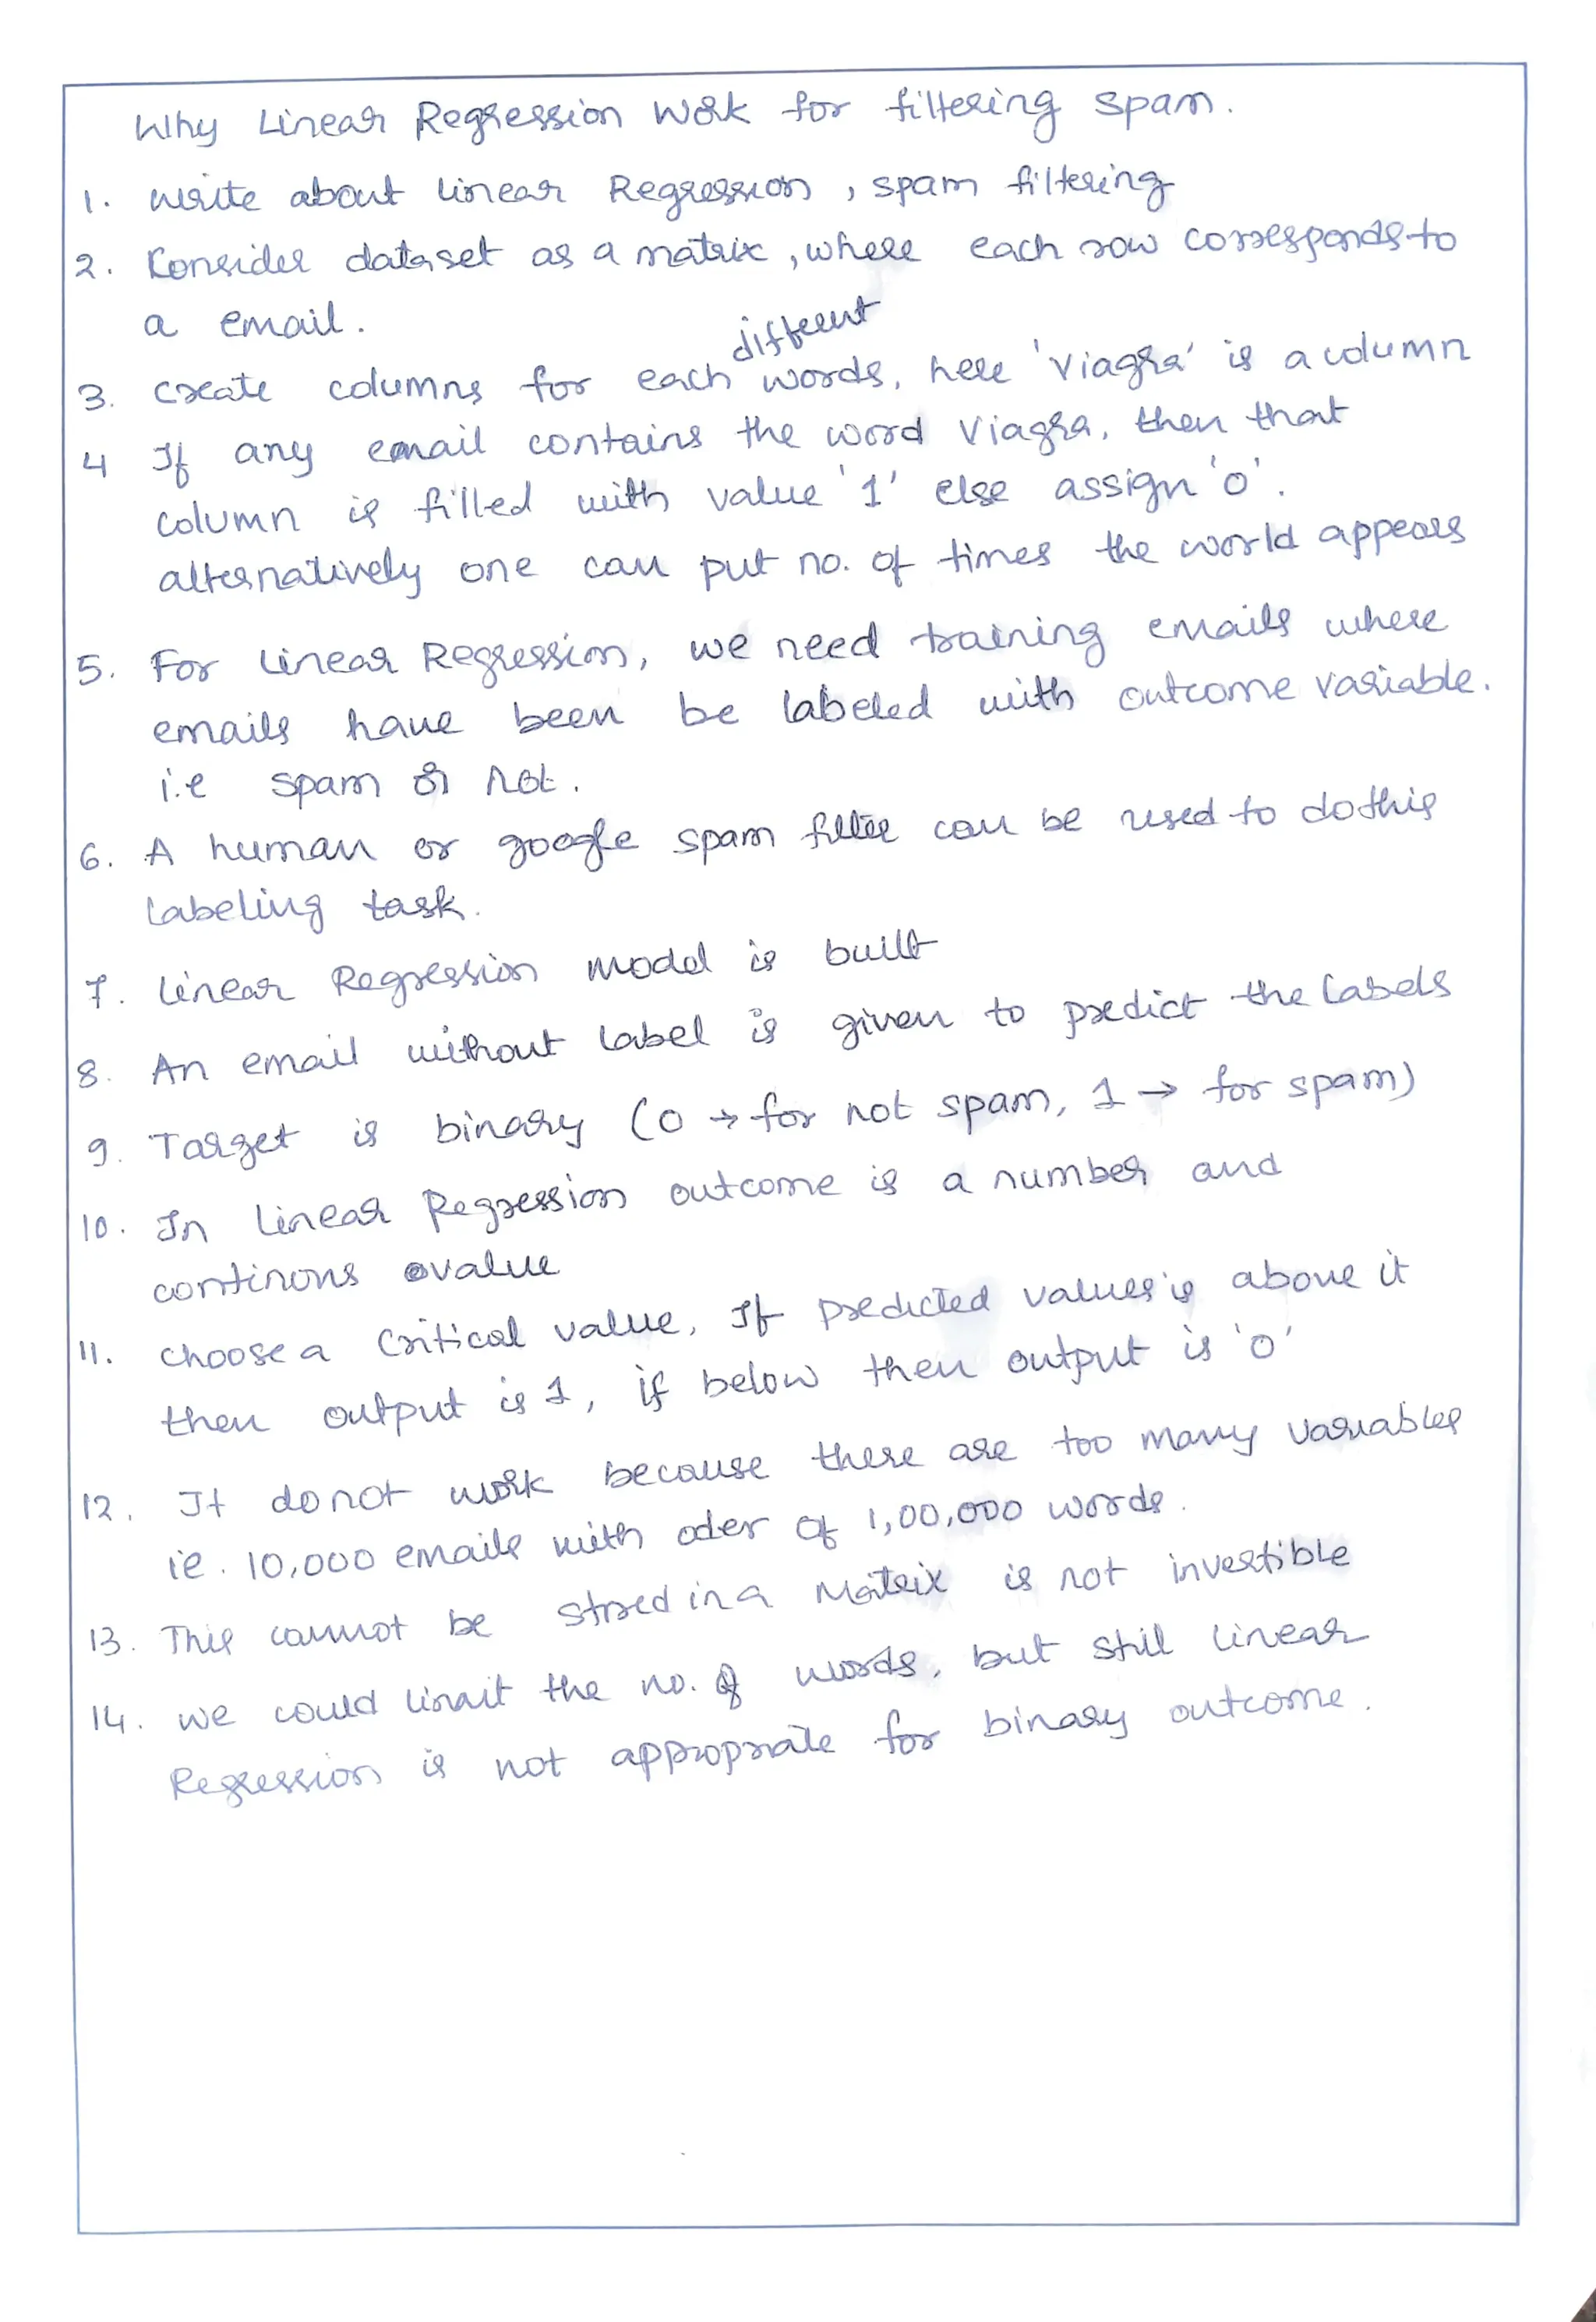 Why Linear Regression Work for filtering spam.
1. write about linear Regression, spam filtering
2. Consider dataset as a matrix, where each row corresponds to
a email.
different
3. create columns for each words, here 'Viagra' is a column
4 If any email contains the word Viagra, then that
column is filled with value '1' else assign '0'.
alternatively one can put no. of times the world appears
5. For Linear Regression, we need training emails where
emails have been be labeled with outcome variable.
i.e spam or not.
6. A human or google spam filter can be used to do this
labeling task.
7. Linear Regression model is built
8. An email without label is given to predict the labels
9. Target is binary (0 → for not spam, 1 → for spam)
10. In Linear Regression outcome is a number and
continons value
11. choose a Critical value, If predicted values is above it
then output is 1, if below then output is '0'
12. It do not work because there are too many variables
ie. 10,000 emails with oder of 1,00,000 words.
13. This cannot be stored in a Matrix is not invertible
14. we could limit the no. of words, but still linear
Regression is not appropriate for binary outcome.